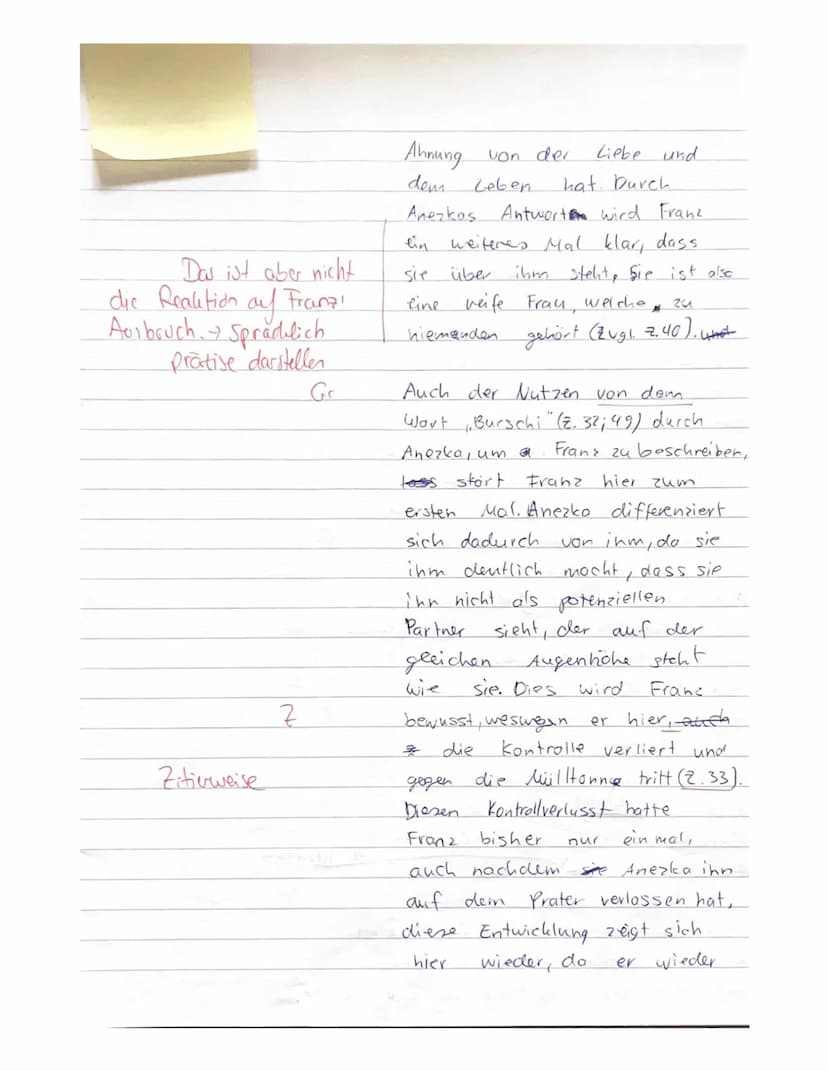 Ahnung von der Liebe und
dem Leben hat. Durch
Anezkas Antwort wird Franz
ein weiteres Mal klar, dass
sie über ihm steht, Sie ist also
eine reife Frau, welche zu
niemanden gehört (Z vgl. Z.40). und
Das ist aber nicht
die Reaktion auf Franz'
Ausbruch. → Sprachlich
präzise darstellen
Gr
Auch der Nutzen von dem
Wort „Burschi" (Z. 32; 49) durch
Anezka, um Franz zu beschreiben,
stört Franz hier zum
ersten Mal. Anezka differenziert
sich dadurch von ihm, da sie
ihm deutlich macht, dass sie
ihn nicht als potenziellen
Partner sieht, der auf der
gleichen Augenhöhe steht
wie sie. Dies wird Franz
Z
bewusst, weswegen er hier, auch
die Kontrolle verliert und
Zitierweise
gegen die Mülltonne tritt (Z.33).
Diesen Kontrollverlusst hatte
Franz bisher nur einmal,
auch nachdem sie Anezka ihn
auf dem Prater verlossen hat,
diese Entwicklung zeigt sich
hier wieder, da er wieder